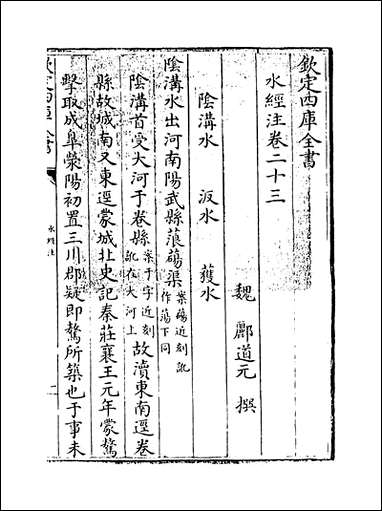 欽定四庫全書
水經注卷二十三
魏 酈道元 撰
陰溝水 汳水 獲水
陰溝水出河南陽武縣蒗䕞渠案䕞近刻訛作蕩下同
陰溝首受大河于卷縣案于字近刻訛在大河上故瀆東南逕卷
縣故城南又東逕蒙城北史記秦莊襄王元年蒙驁
擊取成臯滎陽初置三川郡疑即驁所築也于事未
水經注